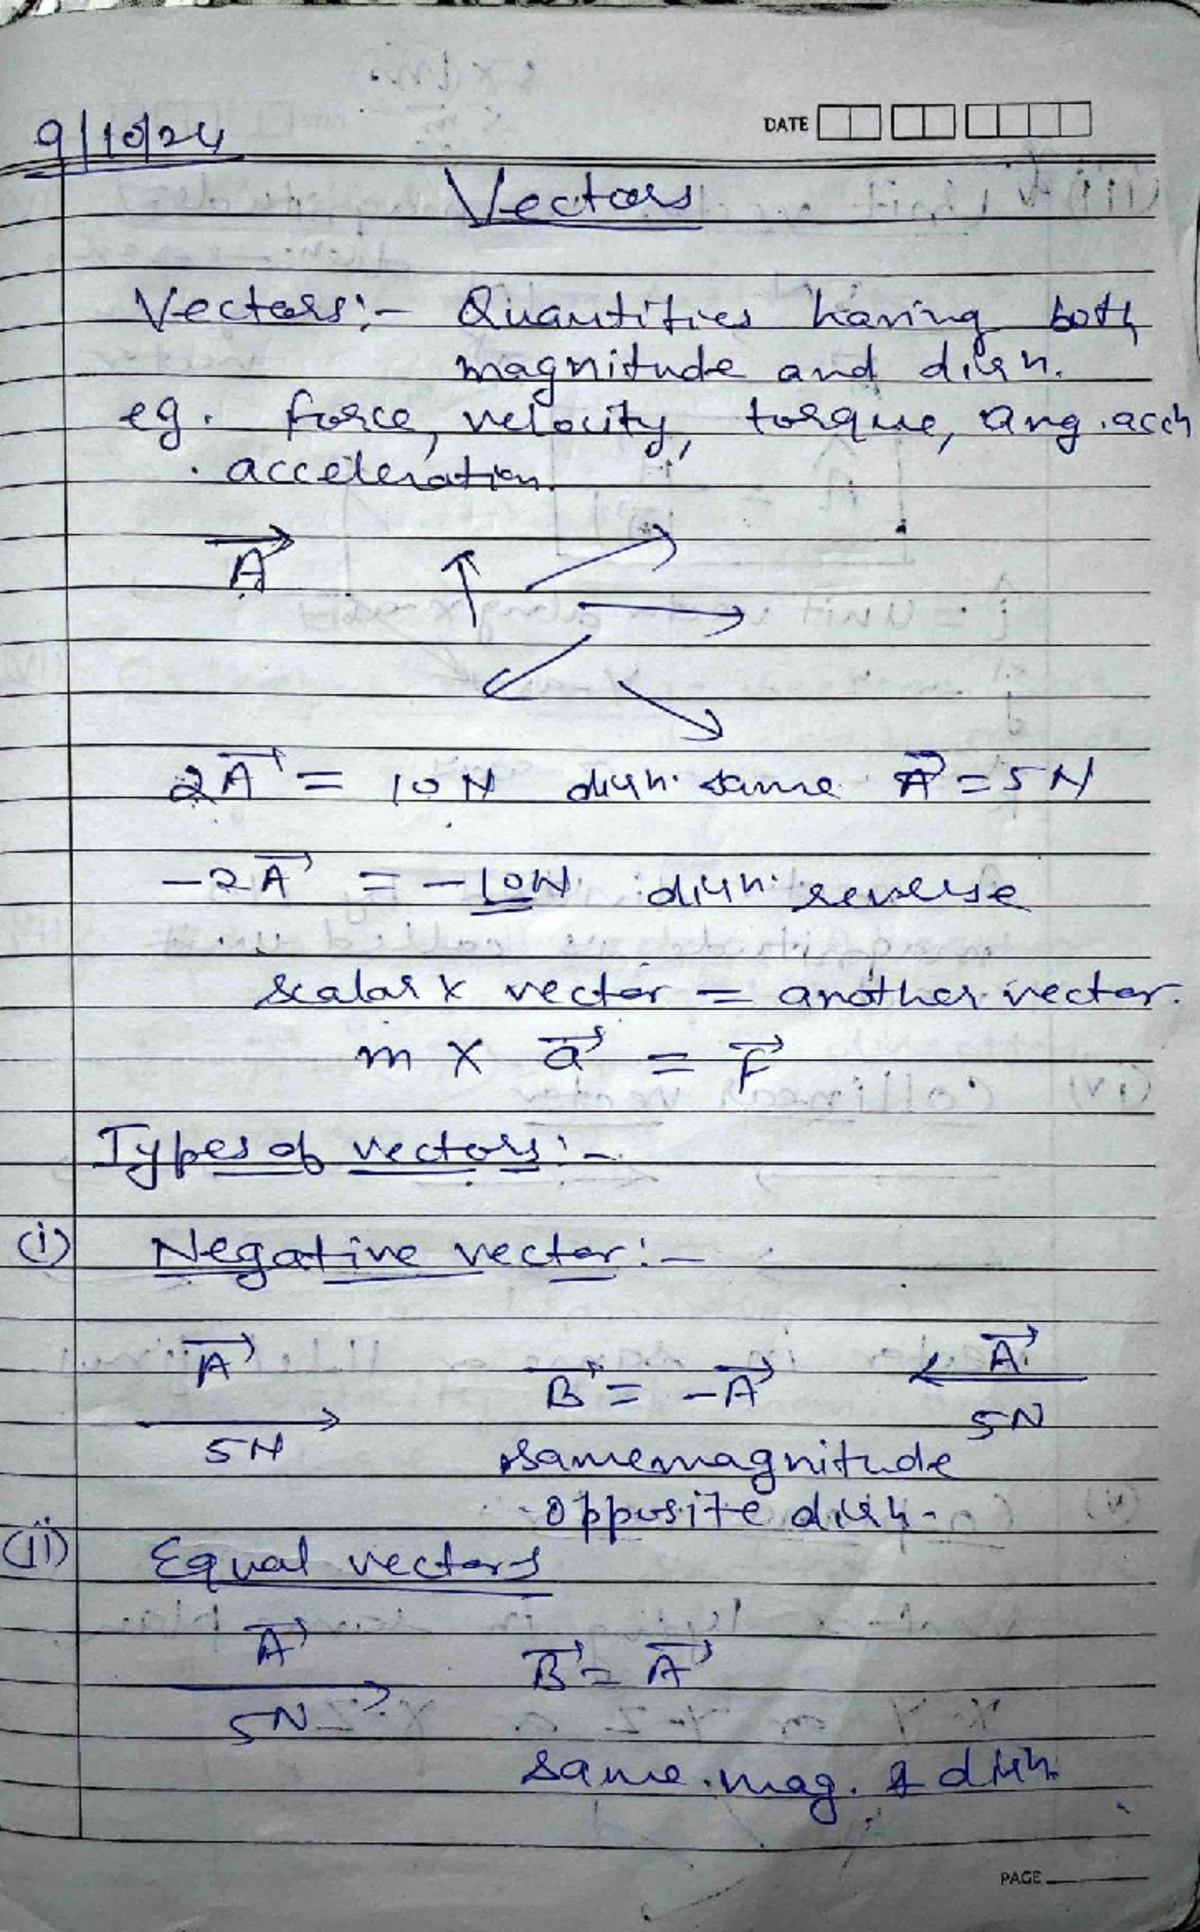 DATE
9/10/24
Vectors
Vectors:- Quantities having both
magnitude and dirn.
eg. force, velocity, torque, ang. accn
acceleration.
A⃗
2A⃗ = 10N dirn. same A⃗ = 5N
-2A⃗ = -10N dirn. reverse
scalar x vector = another vector.
m x a⃗ = F⃗
Types of vectors:-
(i) Negative vector:-
A⃗ B⃗ = -A⃗ A⃗
5N 5N
same magnitude
opposite dirn.
(ii) Equal vectors
A⃗ B⃗ = A⃗
5N
same mag. & dirn.
PAGE